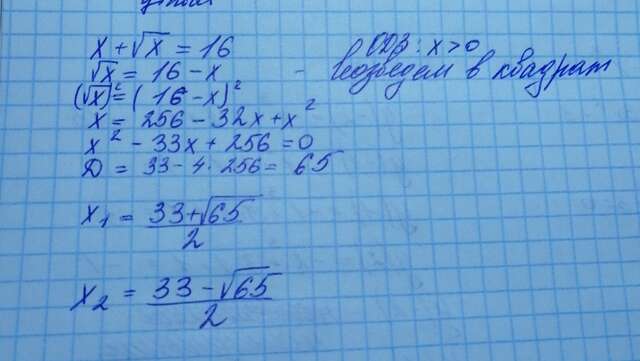 x + √x = 16 ОДЗ: x > 0
√x = 16 − x – Возведем в квадрат
(√x)² = (16 − x)²
x = 256 − 32x + x²
x² − 33x + 256 = 0
D = 33 − 4 · 256 = 65
x₁ = (33 + √65) / 2
x₂ = (33 − √65) / 2